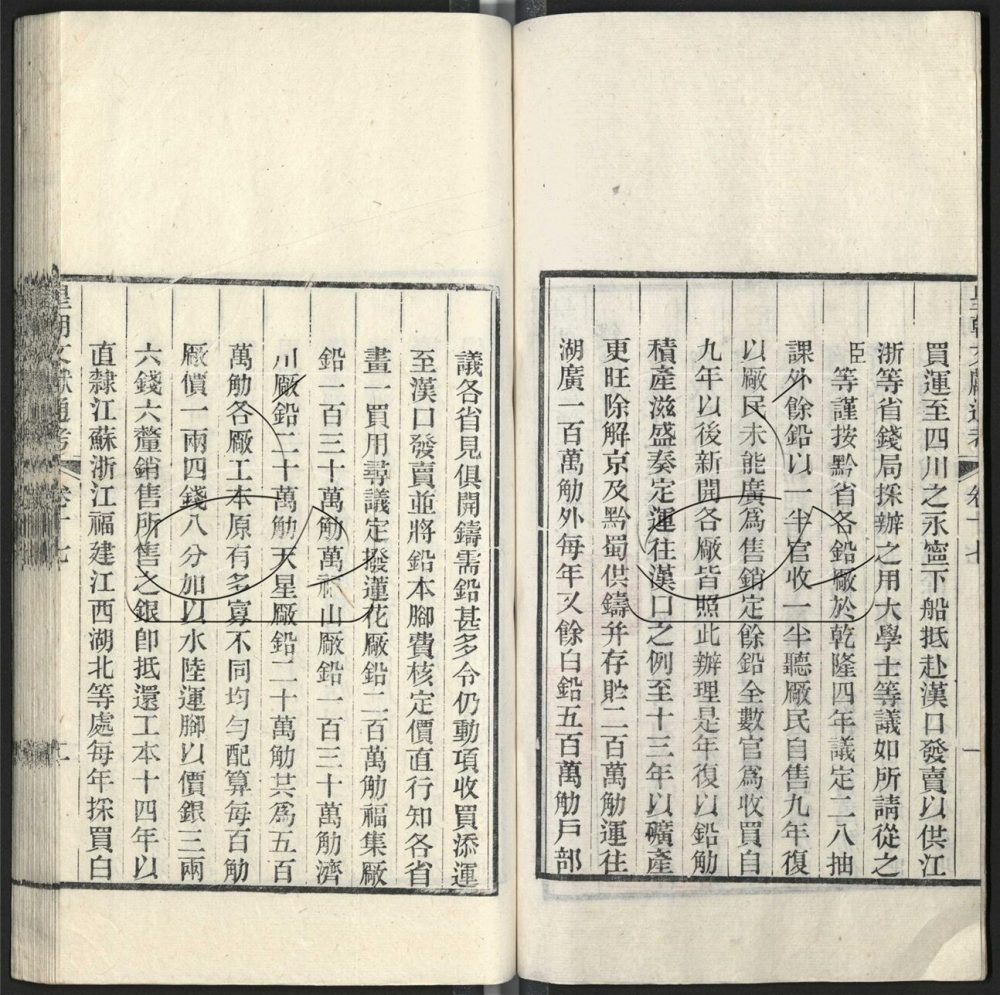 皇朝文獻通考 卷十七 一
買運至四川之永寧下船抵赴漢口發賣以供江
浙等省錢局採辦之用大學士等議如所請從之
臣等謹按黔省各鉛厰於乾隆四年議定二八抽
課外餘鉛以一半官收一半聽厰民自售九年復
以厰民未能廣爲售銷定餘鉛全數官爲收買自
九年以後新開各厰皆照此辦理是年復以鉛觔
積產滋盛奏定運往漢口之例至十三年以礦產
更旺除解京及黔蜀供鑄并存貯二百萬觔運往
湖廣一百萬觔外每年又餘白鉛五百萬觔戸部
議各省見俱開鑄需鉛甚多令仍動項收買添運
至漢口發賣並將鉛本腳費核定價直行知各省
畫一買用尋議定撥蓮花厰鉛二百萬觔福集厰
鉛一百三十萬觔萬福山厰鉛一百三十萬觔濟
川厰鉛二十萬觔天星厰鉛二十萬觔共爲五百
萬觔各厰工本原有多寡不同均勻配算每百觔
厰價一兩四錢八分加以水陸運腳以價銀三兩
六錢六釐銷售所售之銀卽抵還工本十四年以
直隸江蘇浙江福建江西湖北等處每年採買白
皇朝文獻通考 卷十七 二